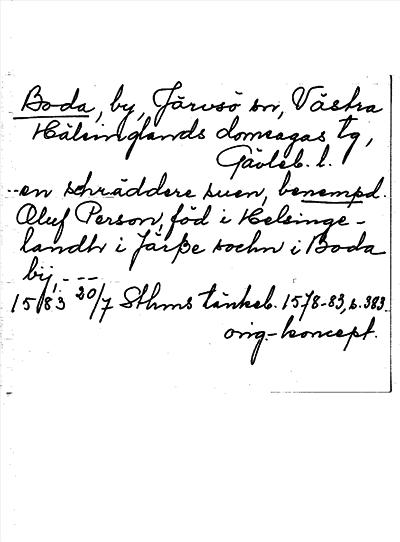 Boda, by, Järvsö sn, Västra
Hälsinglands domsagas tg,
Gävleb. l.
-- en schräddere suen, benempd.
Oluf Person, föd i Helsinge-
landh i Järße sochn i Boda
bij, - --
1583 20/7 Sthms tänkeb. 1578-83, s. 383
orig.-koncept.